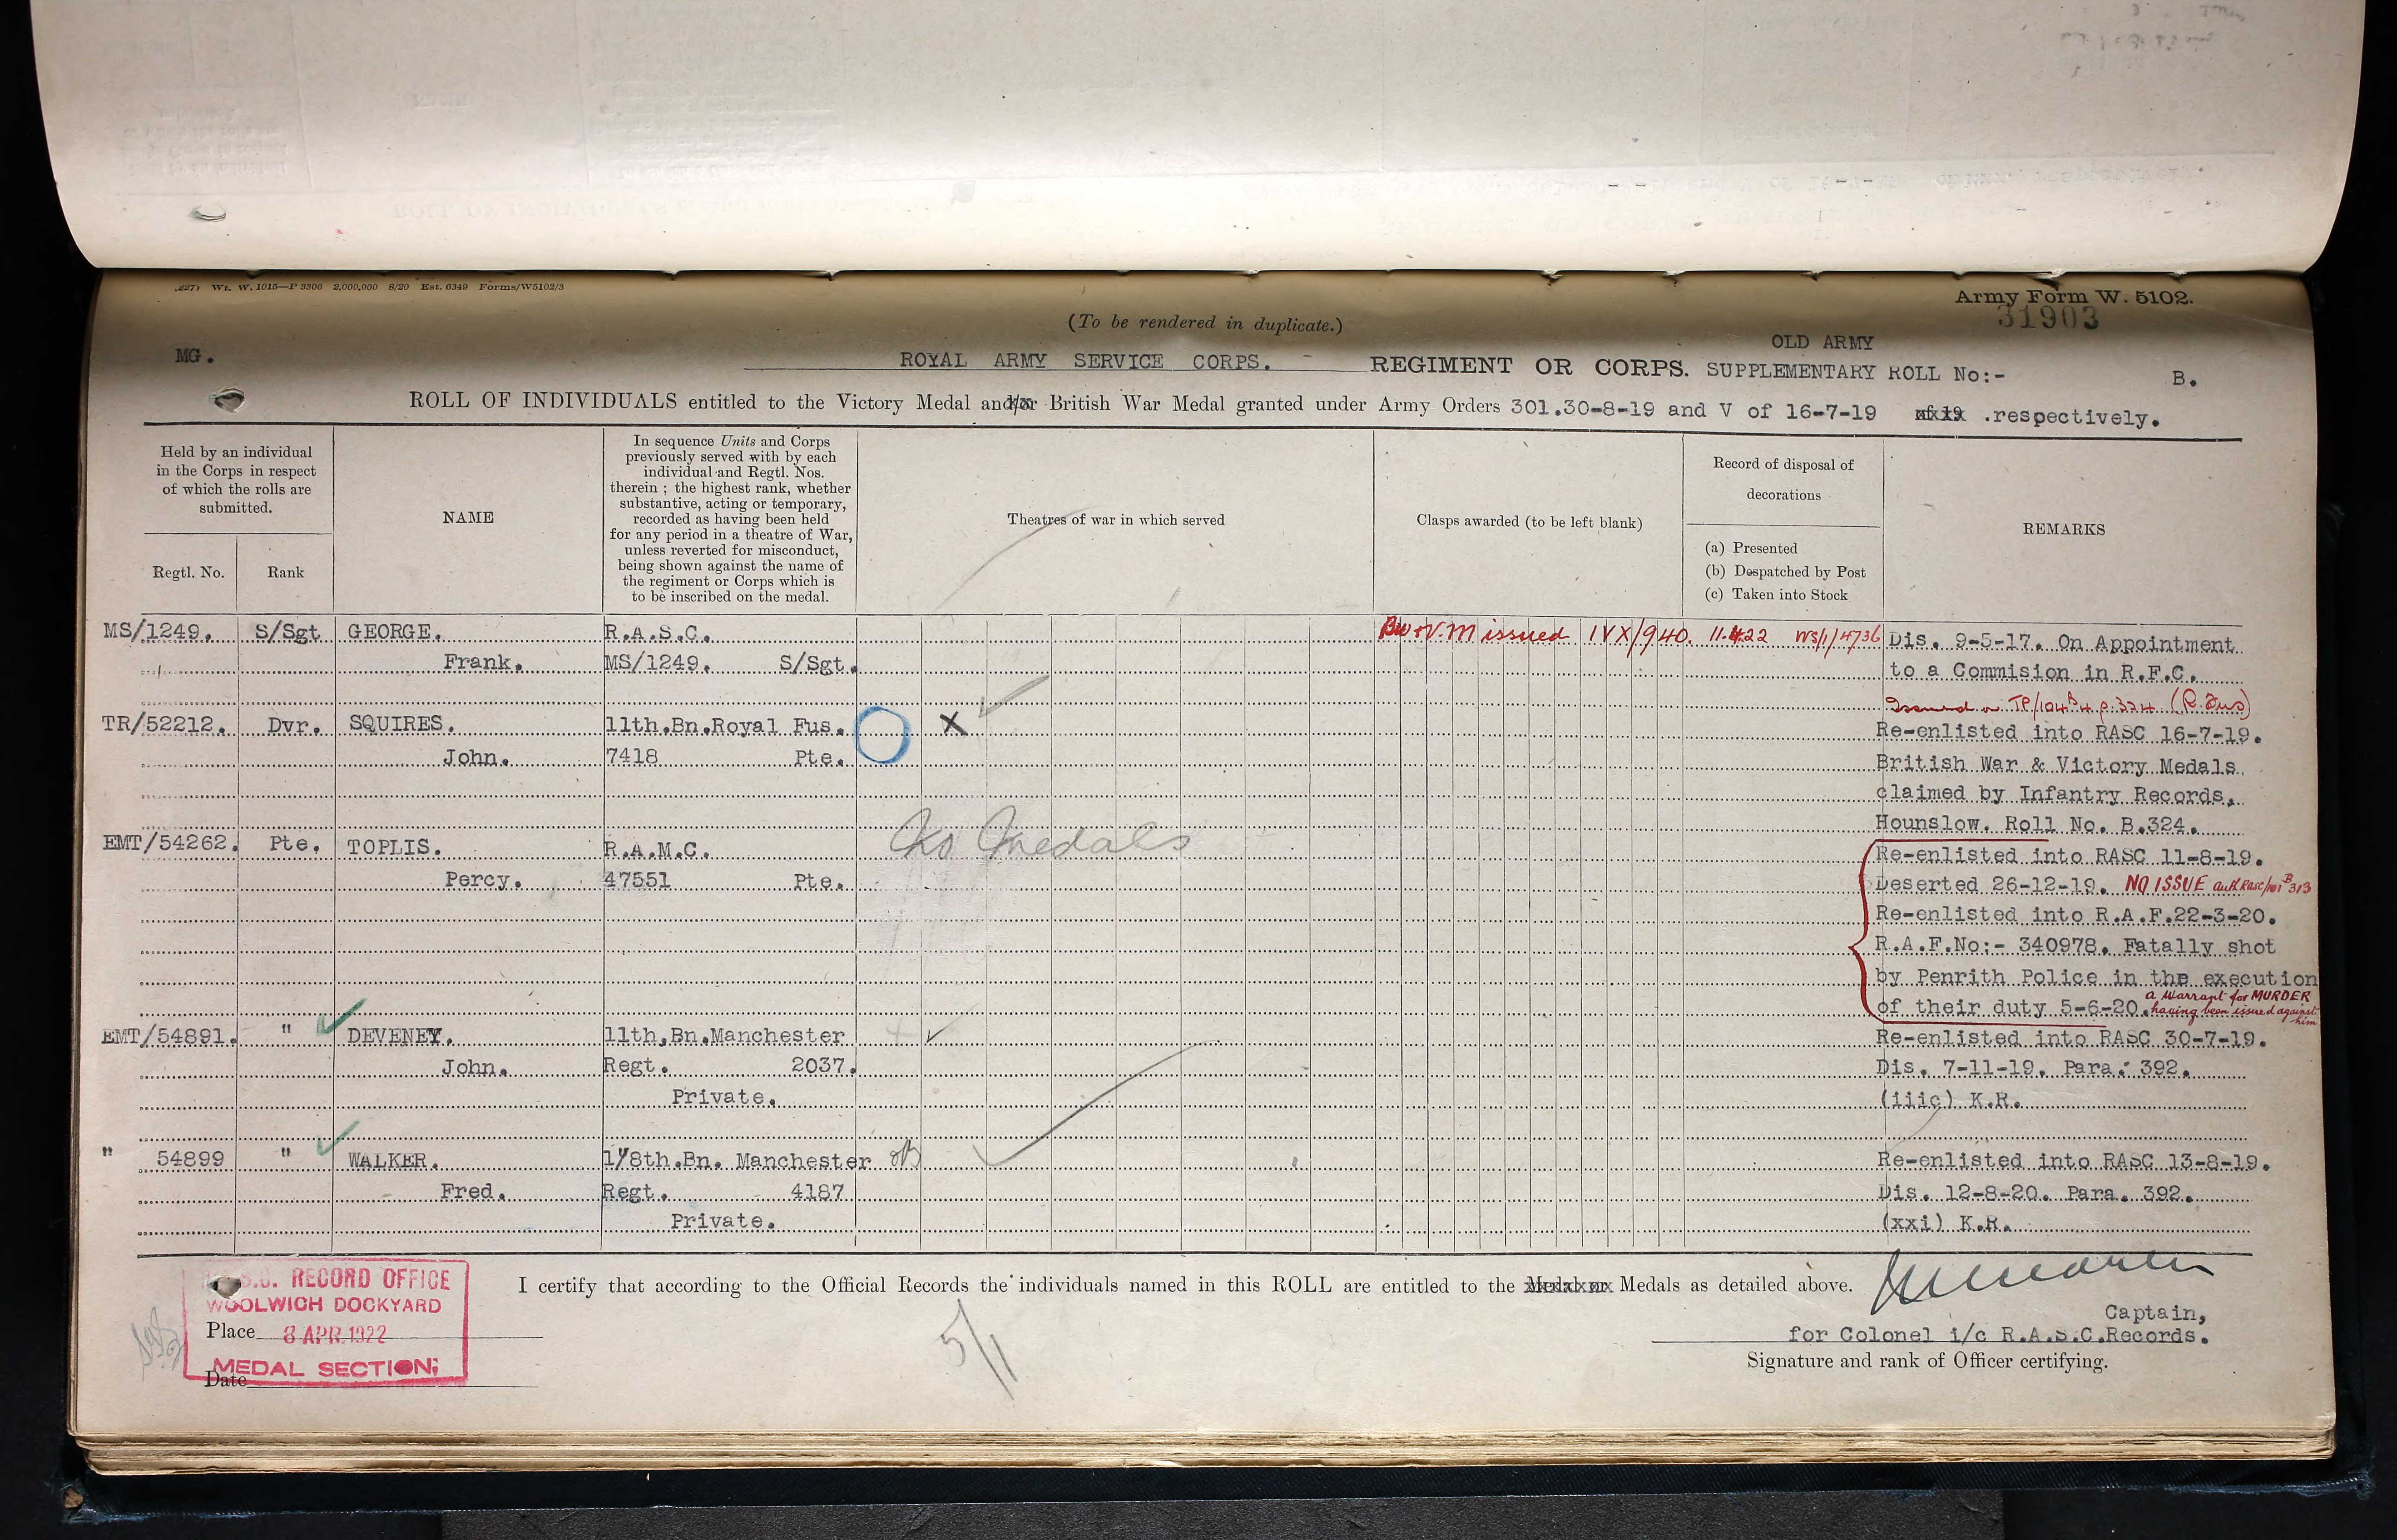 .227) Wt. W. 1015—P 3306 2,000,000 8/20 Est. 6349 Forms/W5102/3
Army Form W. 5102.
31903
(To be rendered in duplicate.)
MG.
ROYAL ARMY SERVICE CORPS. REGIMENT OR CORPS. OLD ARMY SUPPLEMENTARY ROLL No:- B.
ROLL OF INDIVIDUALS entitled to the Victory Medal and/or British War Medal granted under Army Orders 301.30-8-19 and V of 16-7-19 of 19 .respectively.
Held by an individual
in the Corps in respect
of which the rolls are
submitted.
Regtl. No.
Rank
NAME
In sequence Units and Corps
previously served with by each
individual and Regtl. Nos.
therein ; the highest rank, whether
substantive, acting or temporary,
recorded as having been held
for any period in a theatre of War,
unless reverted for misconduct,
being shown against the name of
the regiment or Corps which is
to be inscribed on the medal.
Theatres of war in which served
Clasps awarded (to be left blank)
Record of disposal of
decorations
(a) Presented
(b) Despatched by Post
(c) Taken into Stock
REMARKS
MS/1249. S/Sgt GEORGE. R.A.S.C. BW+V.M issued IVX/940. 11.4.22 WS/1/4736 Dis. 9-5-17. On Appointment
Frank. MS/1249. S/Sgt. to a Commision in R.F.C.
Issued on TP/104 B4 p.324 (R.Fus)
TR/52212. Dvr. SQUIRES. 11th.Bn.Royal Fus. X Re-enlisted into RASC 16-7-19.
John. 7418 Pte. British War & Victory Medals
claimed by Infantry Records,
Hounslow. Roll No. B.324.
EMT/54262. Pte. TOPLIS. R.A.M.C. No Medals Re-enlisted into RASC 11-8-19.
Percy. 47551 Pte. Deserted 26-12-19. NO ISSUE auth RASC/101 B 313
Re-enlisted into R.A.F.22-3-20.
R.A.F.No:- 340978. Fatally shot
by Penrith Police in the execution
of their duty 5-6-20. a Warrant for MURDER
having been issued against
him
EMT/54891. " DEVENEY. 11th,Bn.Manchester Re-enlisted into RASC 30-7-19.
John. Regt. 2037. Dis. 7-11-19. Para: 392.
Private. (iiic) K.R.
" 54899 " WALKER. 1/8th.Bn. Manchester Re-enlisted into RASC 13-8-19.
Fred. Regt. 4187 Dis. 12-8-20. Para. 392.
Private. (xxi) K.R.
I certify that according to the Official Records the individuals named in this ROLL are entitled to the Medal or Medals as detailed above.
S.C. RECORD OFFICE
WOOLWICH DOCKYARD
Place 8 APR 1922
MEDAL SECTION;
Date
5/1
Captain,
for Colonel i/c R.A.S.C.Records.
Signature and rank of Officer certifying.